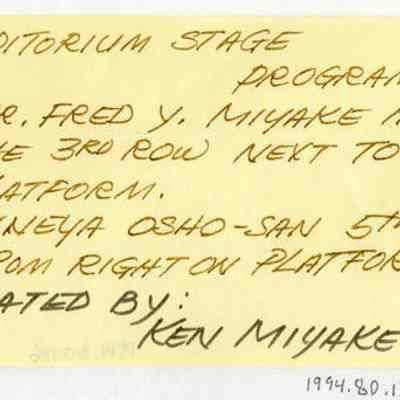 DITORIUM STAGE
PROGRAM
R. FRED Y. MIYAKE
E 3RD ROW NEXT TO
ATFORM.
NEYA OSHO-SAN 5TH
OM RIGHT ON PLATFOR
ATED BY:
KEN MIYAKE
1994.80.1